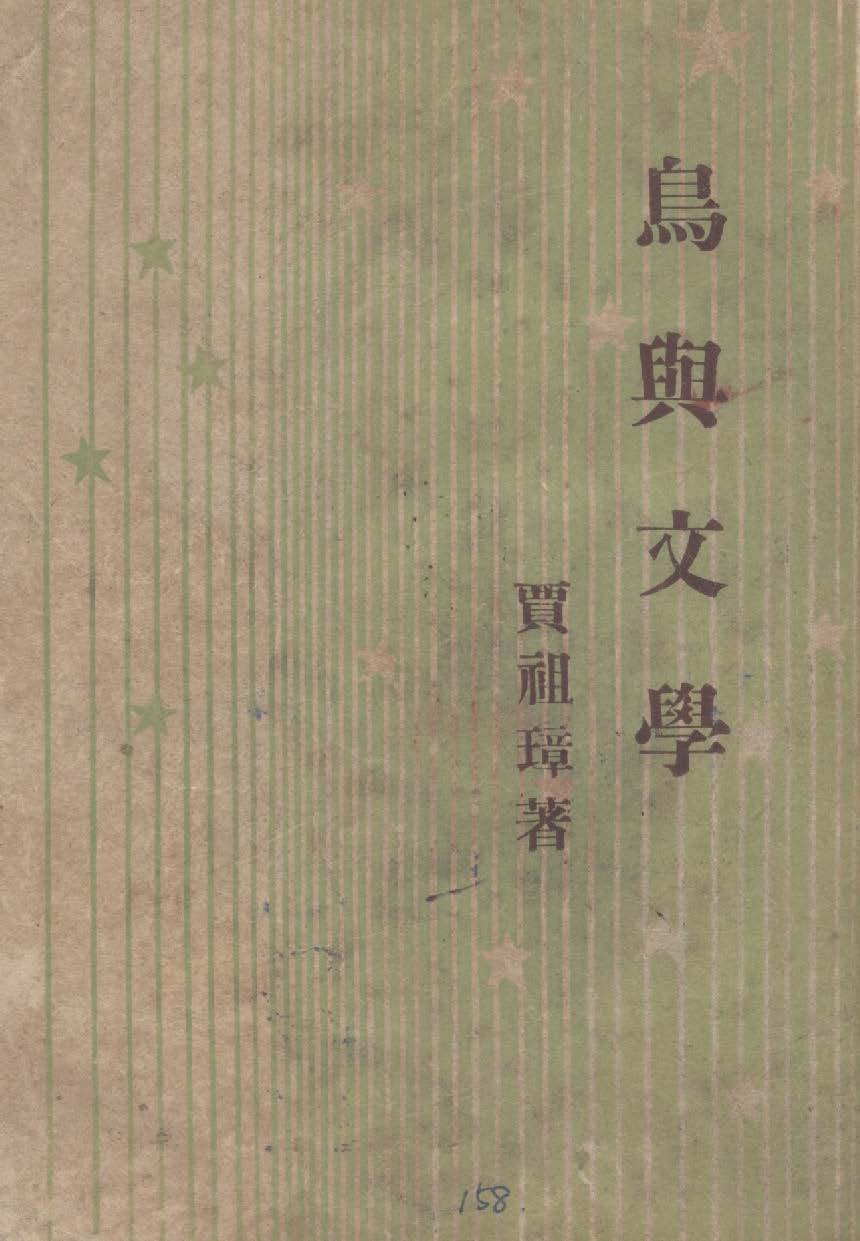 鳥與文學
賈祖璋著
158.